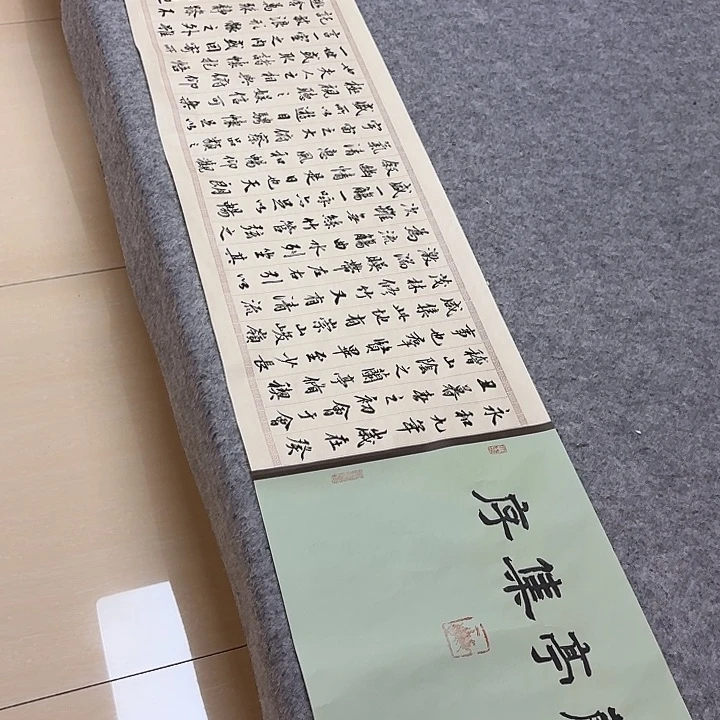 蘭亭集序
永和九年歲在癸
丑暮春之初會于會
稽山陰之蘭亭脩禊
事也羣賢畢至少長
咸集此地有崇山峻嶺
茂林脩竹又有清流
激湍暎帶左右引以
為流觴曲水列坐其
次雖無絲竹管弦之
盛一觴一詠亦足以暢
敘幽情是日也天朗
氣清惠風和暢仰觀
宇宙之大俯察品類之
盛所以遊目騁懷足以
極視聽之娛信可樂
也夫人之相與俯仰
一世或取諸懷抱悟
言一室之內或因寄所